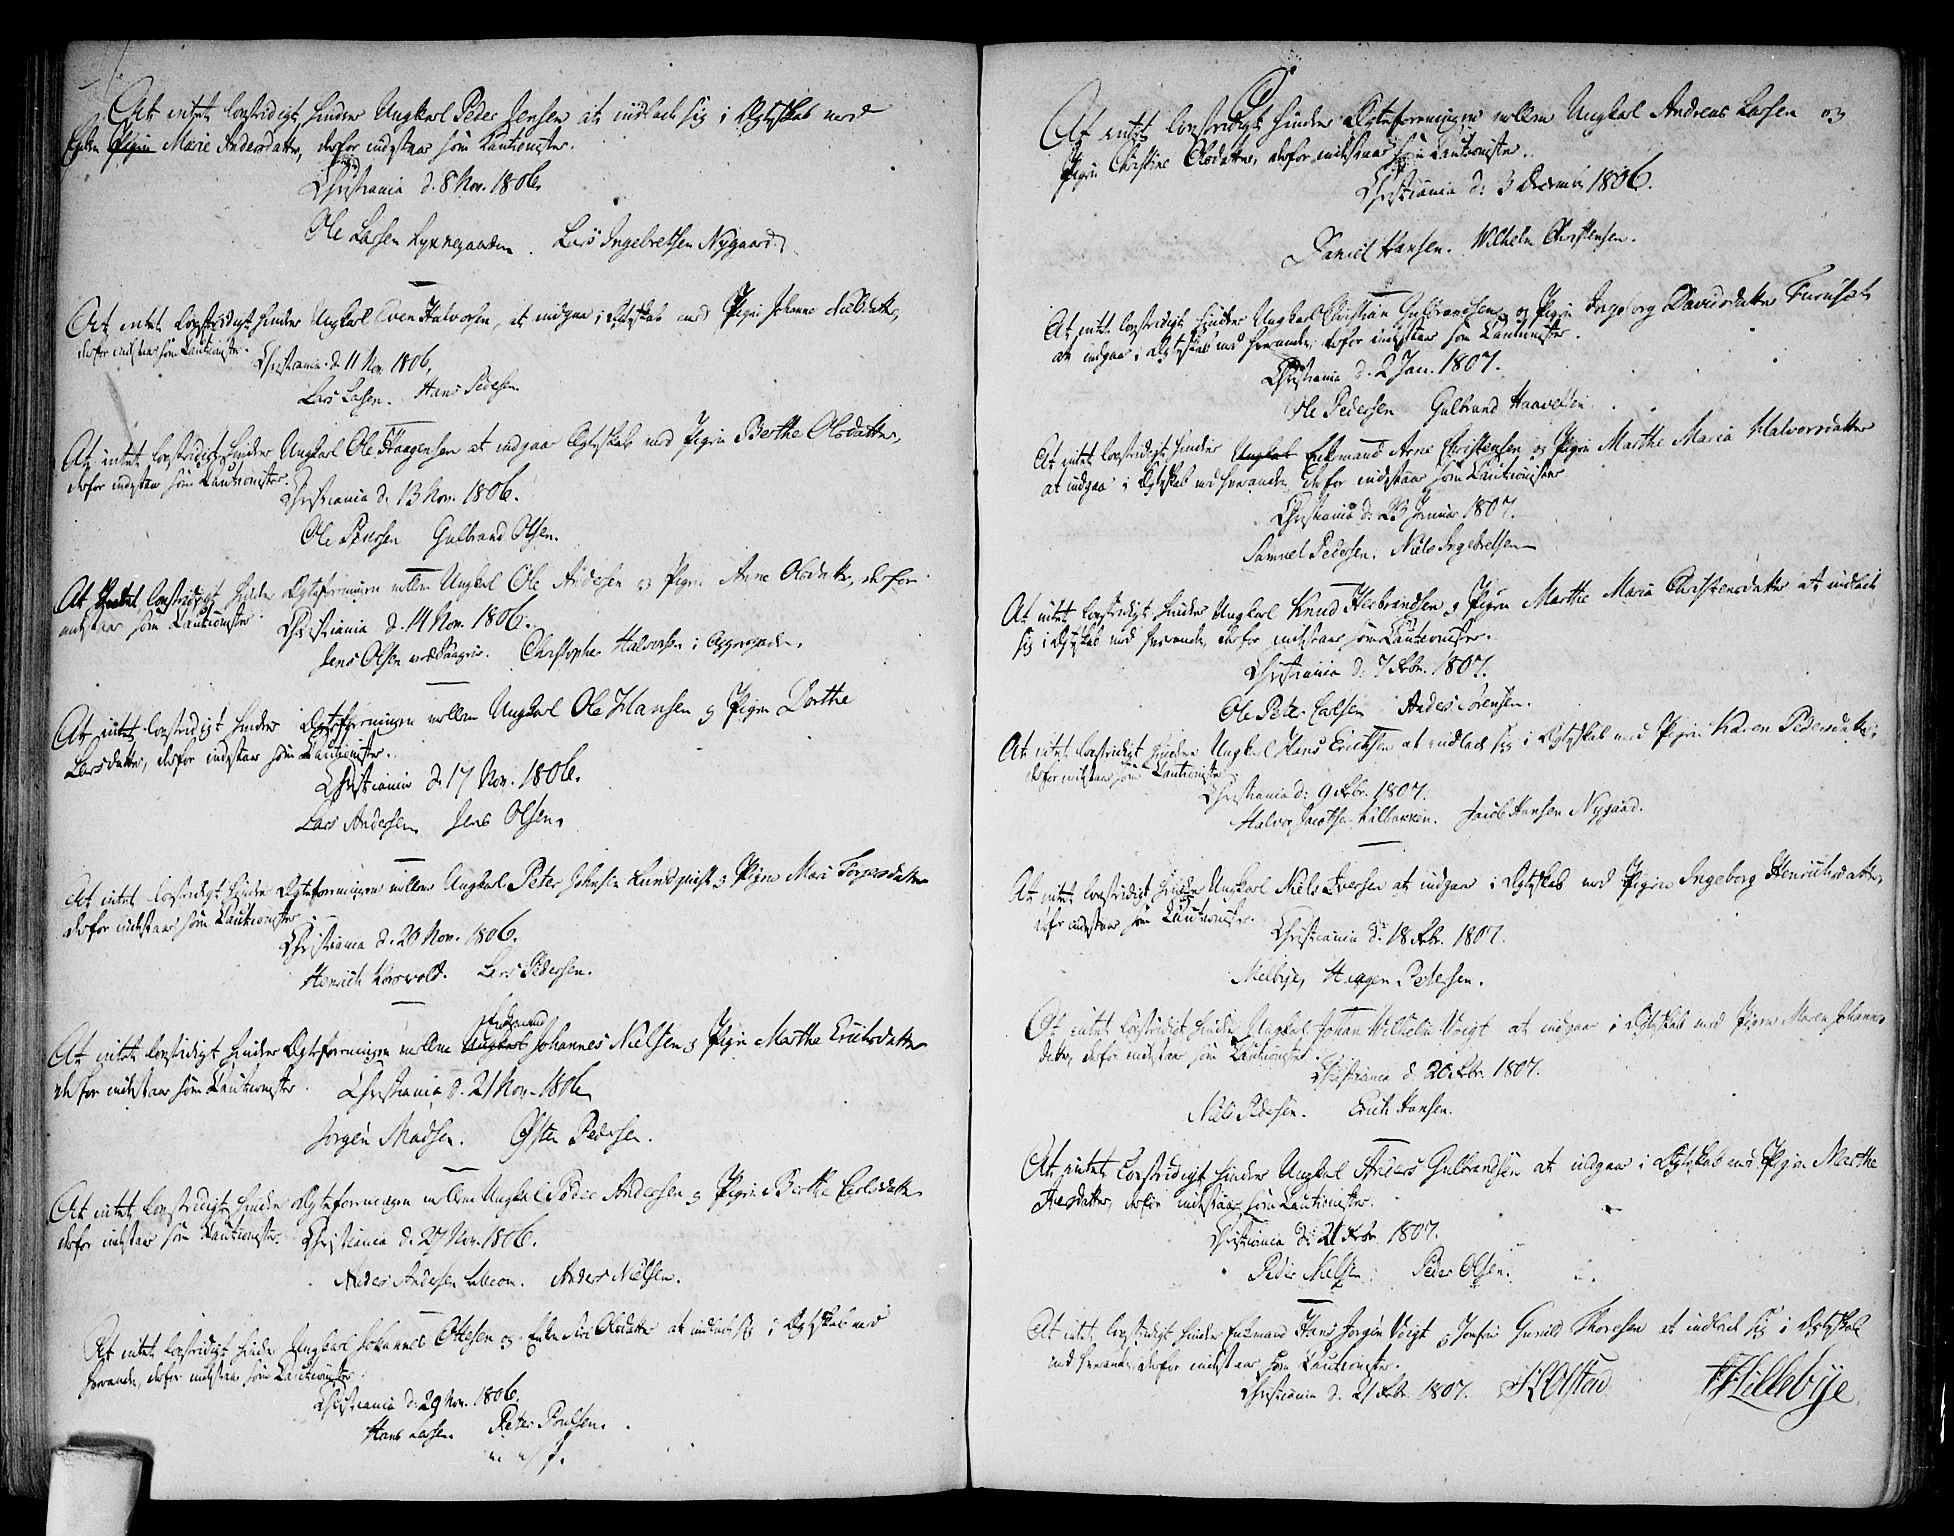 At intet lovstridigt hinder Ungkarl Peder Jensen at indlade sig i Ægteskab med
Enken Pigen Marie Andersdatter, derfor indestaar som Cautionister.
Christiania d. 8 Nov. 1806.
Ole Larsen Lykkegaarden. Lars Ingebretsen Nygaard.
At intet lovstridigt hinder Ungkarl Even Halvorsen, at indgaa i Ægteskab med Pigen Johanne Nielsdatter,
derfor indestaar som Cautionister.
Christiania d. 11 Nov. 1806.
Lars Larsen. Hans Pedersen.
At intet lovstridigt hinder Ungkarl Ole Haagensen at indgaae Ægteskab med Pigen Berthe Olsdatter,
derfor indestaar som Cautionister.
Christiania d. 13 Nov. 1806.
Ole Pedersen Gulbrand Olsen.
At intet lovstridigt hinder Ægteforeningen mellem Ungkarl Ole Andersen og Pigen Anne Olsdatter, derfor
indestaar som Cautionister. Christiania d. 14 Nov. 1806.
Jens Olsen Christopher Halvorsen i
At intet lovstridigt hinder Ægteforeningen mellem Ungkarl Ole Hansen og Pigen Dorthe
Larsdatter, derfor indestaar som Cautionister.
Christiania d. 17 Nov. 1806.
Lars Andersen, Jens Olsen.
At intet lovstridigt hinder Ægteforeningen mellem Ungkarl Peter Johnsen Lundquist og Pigen Mari Torgersdatter
derfor indestaar som Cautionister
Christiania d. 20 Nov. 1806.
Henrich Korsvold. Lars Pedersen.
Enkemand
At intet lovstridigt hinder Ægteforeningen mellem Ungkarl Johannes Nielsen og Pigen Marthe Erichsdatter
derfor indestaar som Cautionister. Christiania d. 21 Nov. 1806.
Jørgen Madsen. Østen Pedersen.
At intet lovstridigt hinder Ægteforeningen mellem Ungkarl Peder Andersen og Pigen Berthe Carlsdatter
derfor indestaar som Cautionister. Christiania d. 27 Nov. 1806.
Anders Andersen Anders Nielsen.
At intet lovstridigt hinder Ungkarl Johannes Ottesen og Enken Siri Olsdatter at indlade sig i Ægteskab med
hverandre, derfor indestaar som Cautionister
Christiania d. 29 Nov. 1806.
Hans Larsen Peter Poulsen.
At intet lovstridigt hinder Ægteforeningen mellem Ungkarl Andreas Larsen og
Pigen Christine Olsdatter, derfor indestaar som Cautionister.
Christiania d. 3 December 1806.
Daniel Hansen. Wilhelm Christensen.
At intet lovstridigt hinder Ungkarl Christian Gulbrandsen og Pigen Ingeborg Davidsdatter Furuset
at indgaa i Ægteskab med hverandre, derfor indestaar som Cautionister.
Christiania d. 2 Jan. 1807.
Ole Pedersen Gulbrand Haavelsen
At intet lovstridigt hinder Ungkarl Enkemand Arne Christensen og Pigen Marthe Maria Halvorsdatter
at indgaa i Ægteskab med hverandre, derfor indestaar som Cautionister
Christiania d. 23 Januar 1807.
Samuel Pedersen. Niels Ingebretsen
At intet lovstridigt hinder Ungkarl Knud Herbrandsen og Pigen Marthe Maria Christensdatter at indlade
sig i Ægteskab med hverandre, derfor indestaar som Cautionister.
Christiania d. 7 Febr. 1807.
Ole Peter Carlsen Anders Sørensen.
At intet lovstridigt hinder Ungkarl Hans Erichsen at indlade sig i Ægteskab med Pigen Karen Pedersdatter,
derfor indestaar som Cautionister.
Christiania d. 9 Febr. 1807.
Halvor Jacobsen Kalbakken. Jacob Hansen Nygaard.
At intet lovstridigt hinder Ungkarl Niels Iversen at indgaa i Ægteskab med Pigen Ingeborg Henrichsdatter,
derfor indestaar som Cautionister.
Christiania d. 18 Febr. 1807.
Melbye, Haagen Pedersen.
At intet lovstridigt hinder Ungkarl Johan Wilhelm Voigt at indgaa i Ægteskab med Pigen Maren Johannes
datter, derfor indestaar som Cautionister.
Christiania d. 20 Febr. 1807.
Niels Pedersen. Erich Hansen.
At intet lovstridigt hinder Ungkarl Anders Gulbrandsen at indgaa i Ægteskab med Pigen Marthe
Iversdatter, derfor indestaar som Cautionister.
Christiania d. 21 Febr. 1807.
Peder Nielsen. Peder Olsen.
At intet lovstridigt hinder Enkemand Hans Jørgen Voigt og Jomfru Gunild Thoresen at indlade sig i Ægteskab
med hverandre, derfor indestaar som Cautionister.
Christiania d. 21 Febr. 1807. Olsten Lillebye.